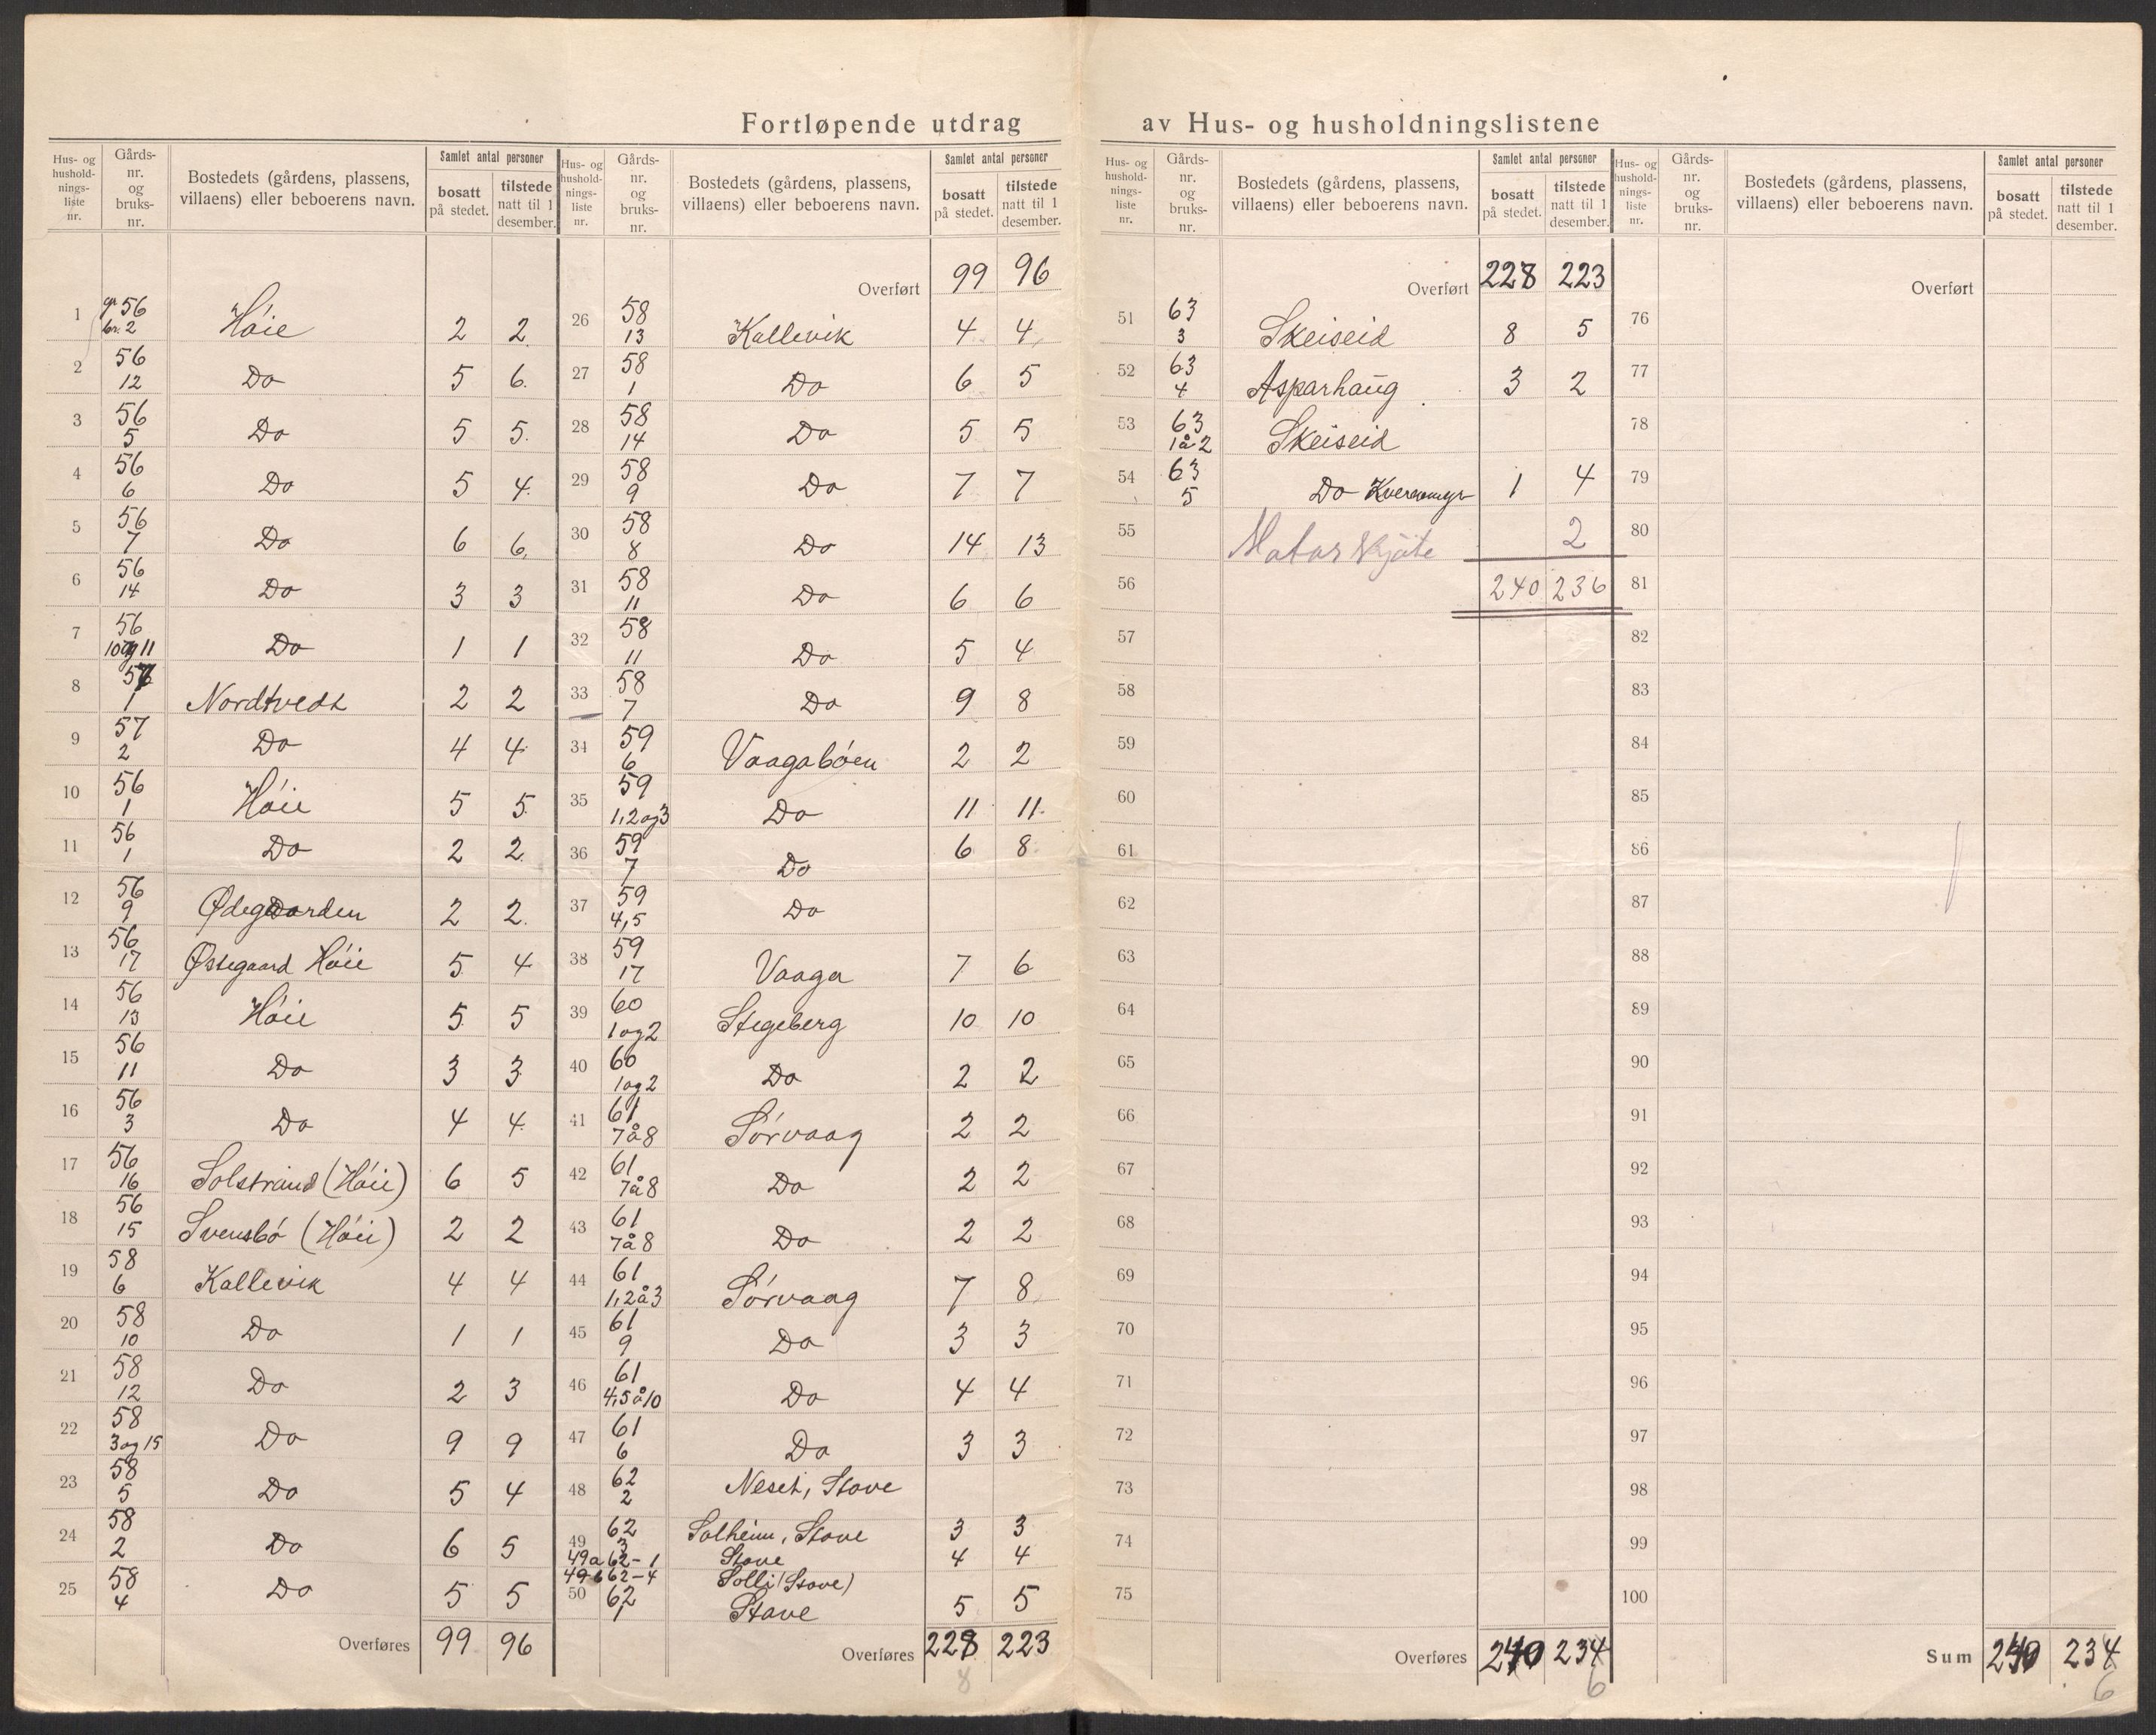 Fortløpende utdrag av Hus- og husholdningslistene
Hus- og hushold-nings-liste nr. | Gårds-nr. og bruks-nr. | Bostedets (gårdens, plassens, villaens) eller beboerens navn. | Samlet antal personer: bosatt på stedet. | tilstede natt til 1 desember.
1 gr 56 br. 2 Høie 2 2
2 56 12 Do 5 6
3 56 5 Do 5 5
4 56 6 Do 5 4
5 56 7 Do 6 6
6 56 14 Do 3 3
7 56 10 og 11 Do 1 1
8 57 1 Nordtvedt 2 2
9 57 2 Do 4 4
10 56 1 Høie 5 5
11 56 1 Do 2 2
12 56 9 Ødegaarden 2 2
13 56 17 Østegaard Høie 5 4
14 56 13 Høie 5 5
15 56 11 Do 3 3
16 56 3 Do 4 4
17 56 16 Solstrand (Høie) 6 5
18 56 15 Svensbø (Høie) 2 2
19 58 6 Kallevik 4 4
20 58 10 Do 1 1
21 58 12 Do 2 3
22 58 3 og 15 Do 9 9
23 58 5 Do 5 4
24 58 2 Do 6 5
25 58 4 Do 5 5
Overføres 99 96
Hus- og hushold-nings-liste nr. | Gårds-nr. og bruks-nr. | Bostedets (gårdens, plassens, villaens) eller beboerens navn. | Samlet antal personer: bosatt på stedet. | tilstede natt til 1 desember.
Overført 99 96
26 58 13 Kallevik 4 4
27 58 1 Do 6 5
28 58 14 Do 5 5
29 58 9 Do 7 7
30 58 8 Do 14 13
31 58 11 Do 6 6
32 58 11 Do 5 4
33 58 7 Do 9 8
34 59 6 Vaagabøen 2 2
35 59 1,2 og 3 Do 11 11
36 59 7 Do 6 8
37 59 4,5 Do
38 59 17 Vaaga 7 6
39 60 1 og 2 Stegeberg 10 10
40 60 1 og 2 Do 2 2
41 61 7 å 8 Sørvaag 2 2
42 61 7 å 8 Do 2 2
43 61 7 å 8 Do 2 2
44 61 1,2 å 3 Sørvaag 7 8
45 61 9 Do 3 3
46 61 4,5 å 10 Do 4 4
47 61 6 Do 3 3
48 62 2 Neset, Stave
49 62 3 Solheim, Stave 3 3
49a 62-1 Stave 4 4
49b 62-4 Solli (Stave)
50 62 1 Stave 5 5
Overføres 228 223
8
Hus- og hushold-nings-liste nr. | Gårds-nr. og bruks-nr. | Bostedets (gårdens, plassens, villaens) eller beboerens navn. | Samlet antal personer: bosatt på stedet. | tilstede natt til 1 desember.
Overført 228 223
51 63 3 Skeiseid 8 5
52 63 4 Asparhaug 3 2
53 63 1 å 2 Skeiseid
54 63 5 Do 1 4
55 2
56 240 236
57
58
59
60
61
62
63
64
65
66
67
68
69
70
71
72
73
74
75
Overføres 240 234
6
Hus- og hushold-nings-liste nr. | Gårds-nr. og bruks-nr. | Bostedets (gårdens, plassens, villaens) eller beboerens navn. | Samlet antal personer: bosatt på stedet. | tilstede natt til 1 desember.
Overført
76
77
78
79
80
81
82
83
84
85
86
87
88
89
90
91
92
93
94
95
96
97
98
99
100
Sum 240 234
6